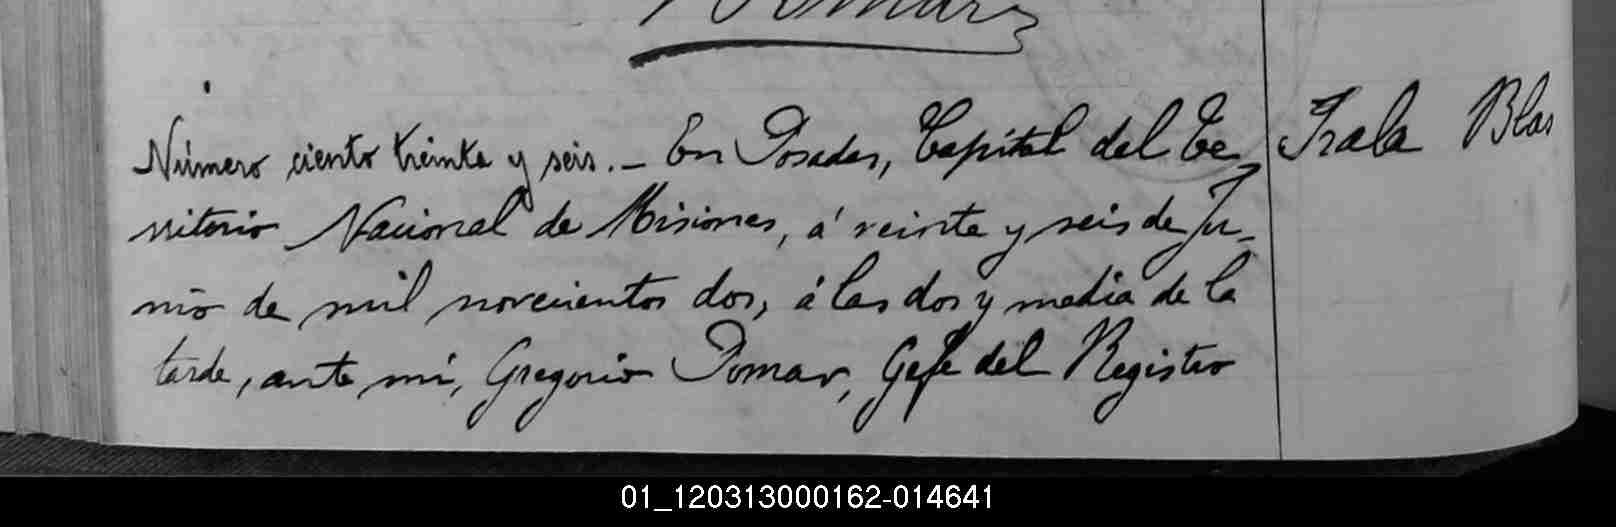 Pomar
Número ciento treinta y seis. – En Posadas, Capital del Te-
rritorio Nacional de Misiones, á veinte y seis de Ju-
nio de mil novecientos dos, á las dos y media de la
tarde, ante mí, Gregorio Pomar, Gefe del Registro
Irala Blas
01_120313000162-014641